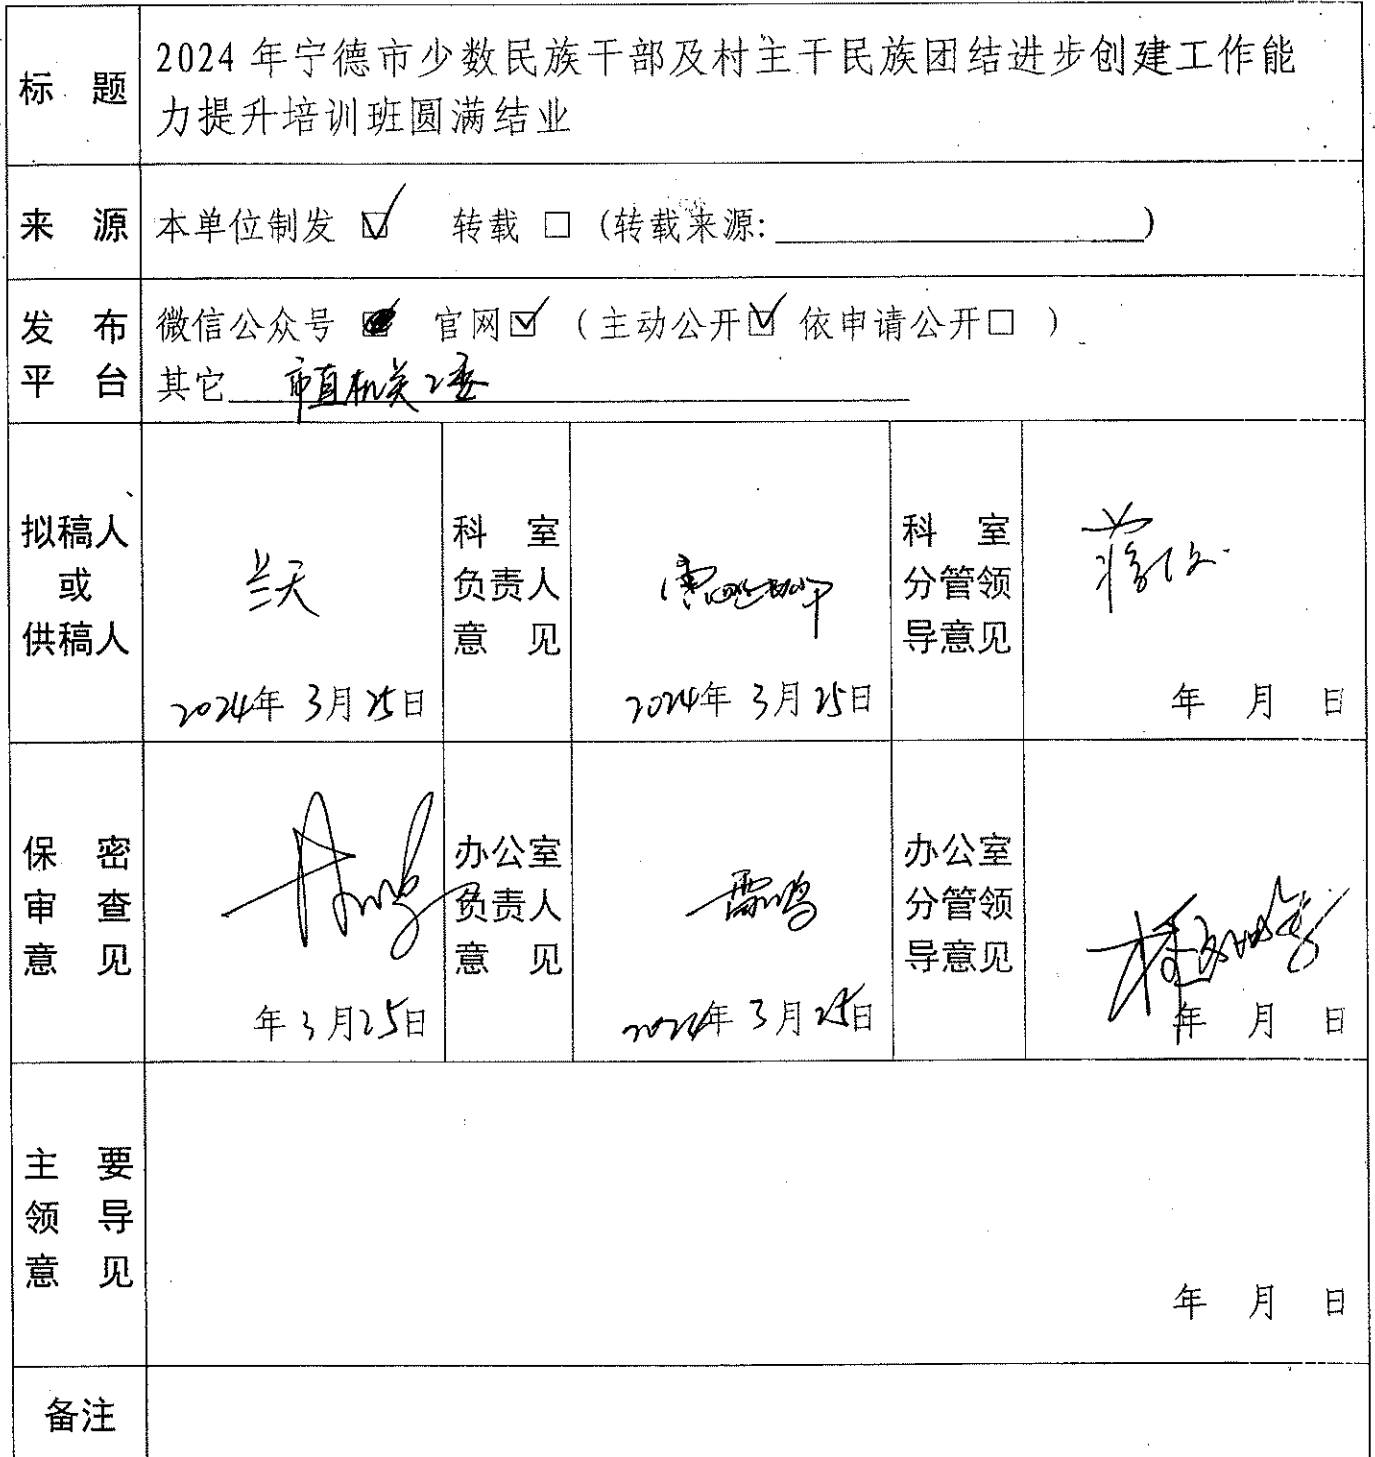 标 题
2024年宁德市少数民族干部及村主干民族团结进步创建工作能
力提升培训班圆满结业
来 源
本单位制发 ☑ 转载 □ (转载来源: )
发 布
平 台
微信公众号 官网☑ (主动公开☑ 依申请公开□ )
其它 市直机关工委
拟稿人
或
供稿人
兰天
2024年 3月 25日
科 室
负责人
意 见
2024年 3月 25日
科 室
分管领
导意见
年 月 日
保 密
审 查
意 见
年 3月25日
办公室
负责人
意 见
雷鸣
2024年 3月 25日
办公室
分管领
导意见
年 月 日
主 要
领 导
意 见
年 月 日
备注